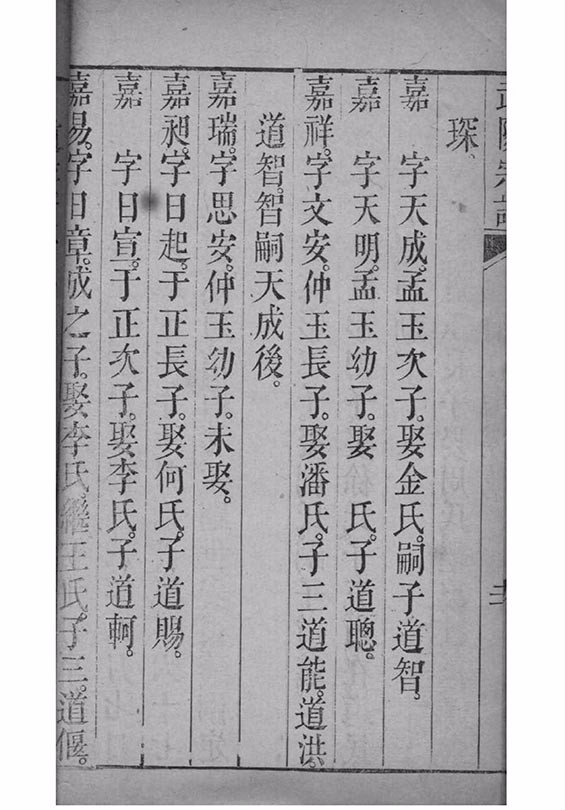 琛、
嘉　字天成。孟玉次子。娶金氏。嗣子道智。
嘉　字天明。孟玉幼子。娶　氏。子道聰。
嘉祥。字文安。仲玉長子。娶潘氏。子三道能。道洪。
道智。智嗣天成後。
嘉瑞。字思安。仲玉幼子。未娶。
嘉昶。字日起。于正長子。娶何氏。子道賜。
嘉　字日宣。于正次子。娶李氏。子道軻。
嘉易。字日章。成之子。娶李氏。繼王氏。子三。道偃。